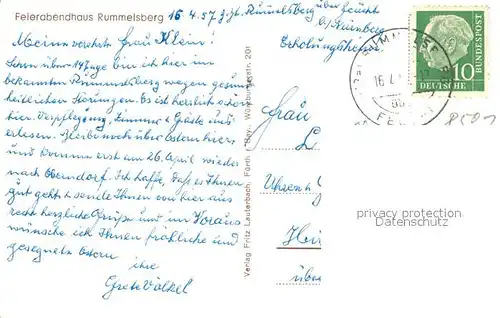 Feierabendhaus Rummelsberg
16.4.57 z. Zt. Rummelsberg über Feucht
b/Nürnberg
Erholungsheim
Meine verehrte Frau Klein!
Schon über 14 Tage bin ich hier im
bekannten Rummelsberg wegen gesund-
heitlichen Störungen. Es ist herrlich schön
hier. Verpflegung, Zimmer & Gäste aus-
erlesen. Bleibe noch über Ostern hier
und komme erst am 26. April wieder
nach Oberndorf. Ich hoffe, daß es Ihnen
gut geht & sende Ihnen von hier aus
recht herzliche Grüße und im Voraus
wünsche ich Ihnen fröhliche und
gesegnete Ostern
Ihre
Grete Völkel
Verlag Fritz Lauterbach, Fürth i. Bay., Würzburgerstr. 201
Frau
Uhren &
über
DEUTSCHE
BUNDESPOST
10
privacy protection
Datenschutz